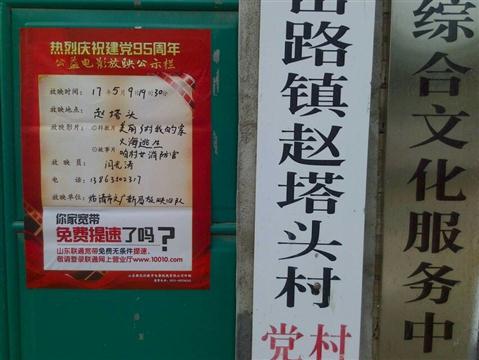 热烈庆祝建党95周年
公益电影放映公示栏
放映时间：17年5月9日19时30分
放映地点：赵塔头
放映影片：①科教片 美丽乡村我的家
火海逃生
②故事片 咱村女消防官
放映员：闫光涛
电话：13863502317
放映单位：临清市文广新局放映四队
你家宽带
免费提速了吗？
山东联通宽带免费无条件提速，
敬请登录联通网上营业厅www.10010.com
路镇赵塔头村
党村
综合文化服务中